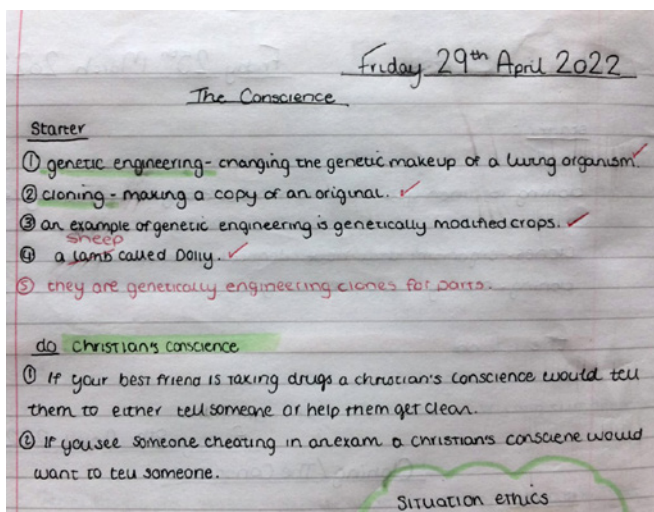 Friday 29th April 2022
The Conscience
Starter
① genetic engineering - changing the genetic makeup of a living organism.
② cloning - making a copy of an original.
③ an example of genetic engineering is genetically modified crops.
sheep
④ a lamb called Dolly.
⑤ they are genetically engineering clones for parts.
do Christian's conscience
① If your best friend is taking drugs a christian's conscience would tell
them to either tell someone or help them get clean.
② If you see someone cheating in an exam a christian's consciene would
want to tell someone.
Situation ethics